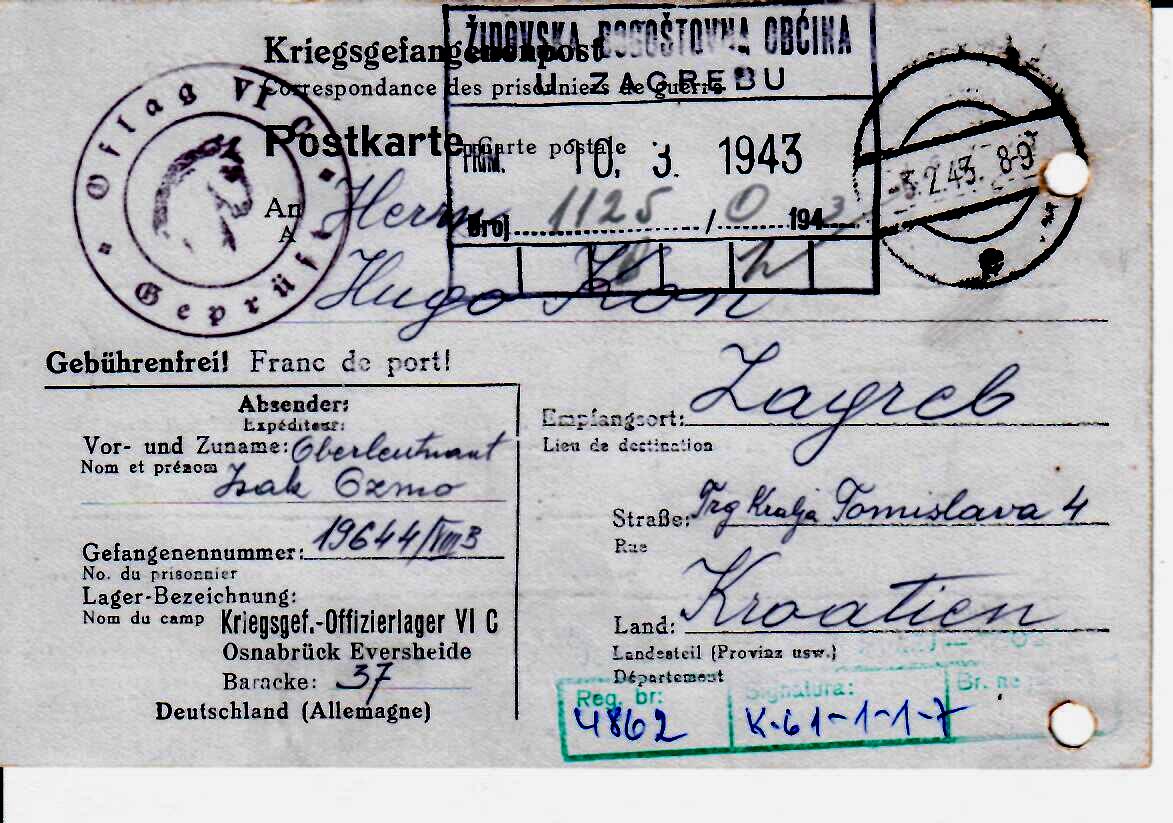 ŽIDOVSKA BOGOŠTOVNA OBĆINA
U ZAGREBU
PRIM. 10. 3. 1943
Broj 1125 / 0 1943
Kriegsgefangenenpost
Correspondance des prisonniers de guerre
Postkarte Carte postale
Oflag VI C
Geprüft
-3.2.43. 8-9
An Herrn
A
Hugo Kon
Gebührenfrei! Franc de port!
Absender:
Expéditeur:
Vor- und Zuname: Oberleutnant
Nom et prénom Isak Ozmo
Gefangenennummer: 19644/VIII B
No. du prisonnier
Lager-Bezeichnung:
Nom du camp Kriegsgef.-Offizierlager VI C
Osnabrück Eversheide
Baracke: 37
Deutschland (Allemagne)
Empfangsort: Zagreb
Lieu de destination
Straße: Trg Kralja Tomislava 4
Rue
Land: Kroatien
Landesteil (Provinz usw.)
Département
Reg. br: Signatura: Br. ne
4862 K-61-1-1-7